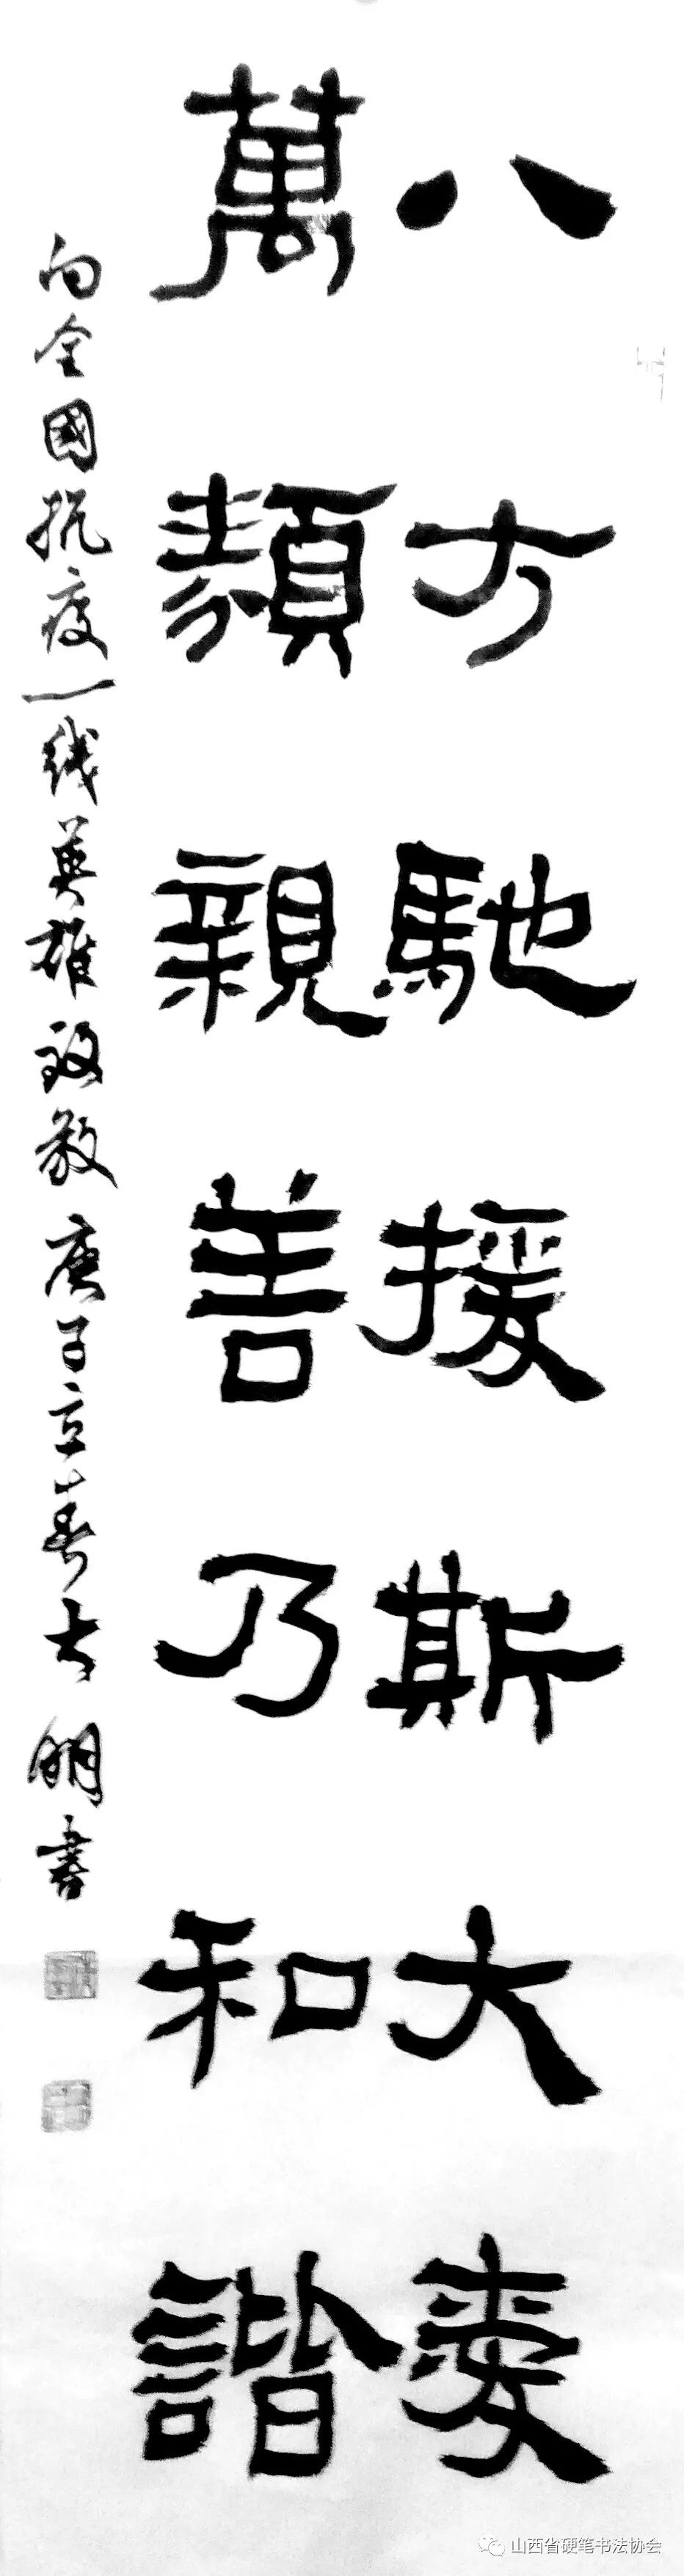 八方馳援斯大愛
萬類親善乃和諧
向全國抗疫一线英雄致敬庚子立春大明書
山西省硬笔书法协会